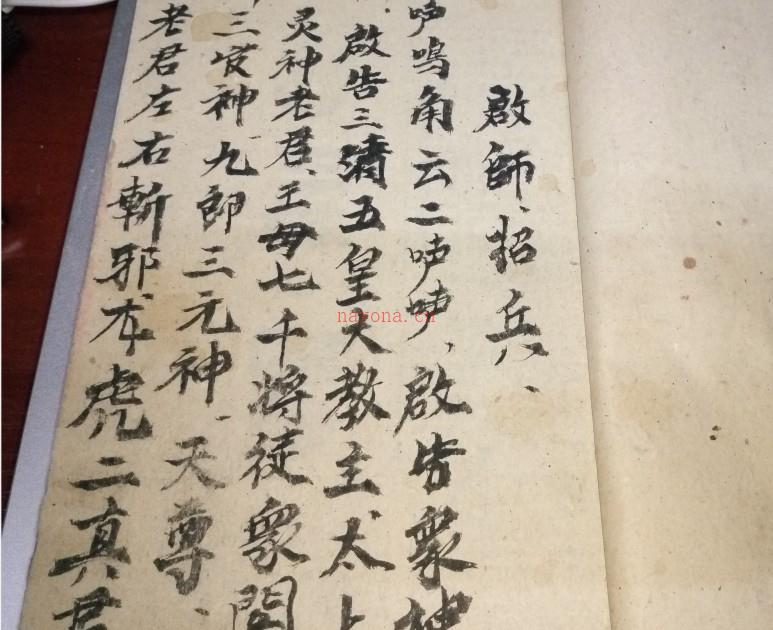 啟師、招兵、
吙鳴角云二吙吙、啟告衆神
啟告三清五皇大教主太上
灵神老君、王母七千將徒衆閭
三官神九郎三元神、天尊、
老君左右斬邪龙虎二真君
nayona.cn